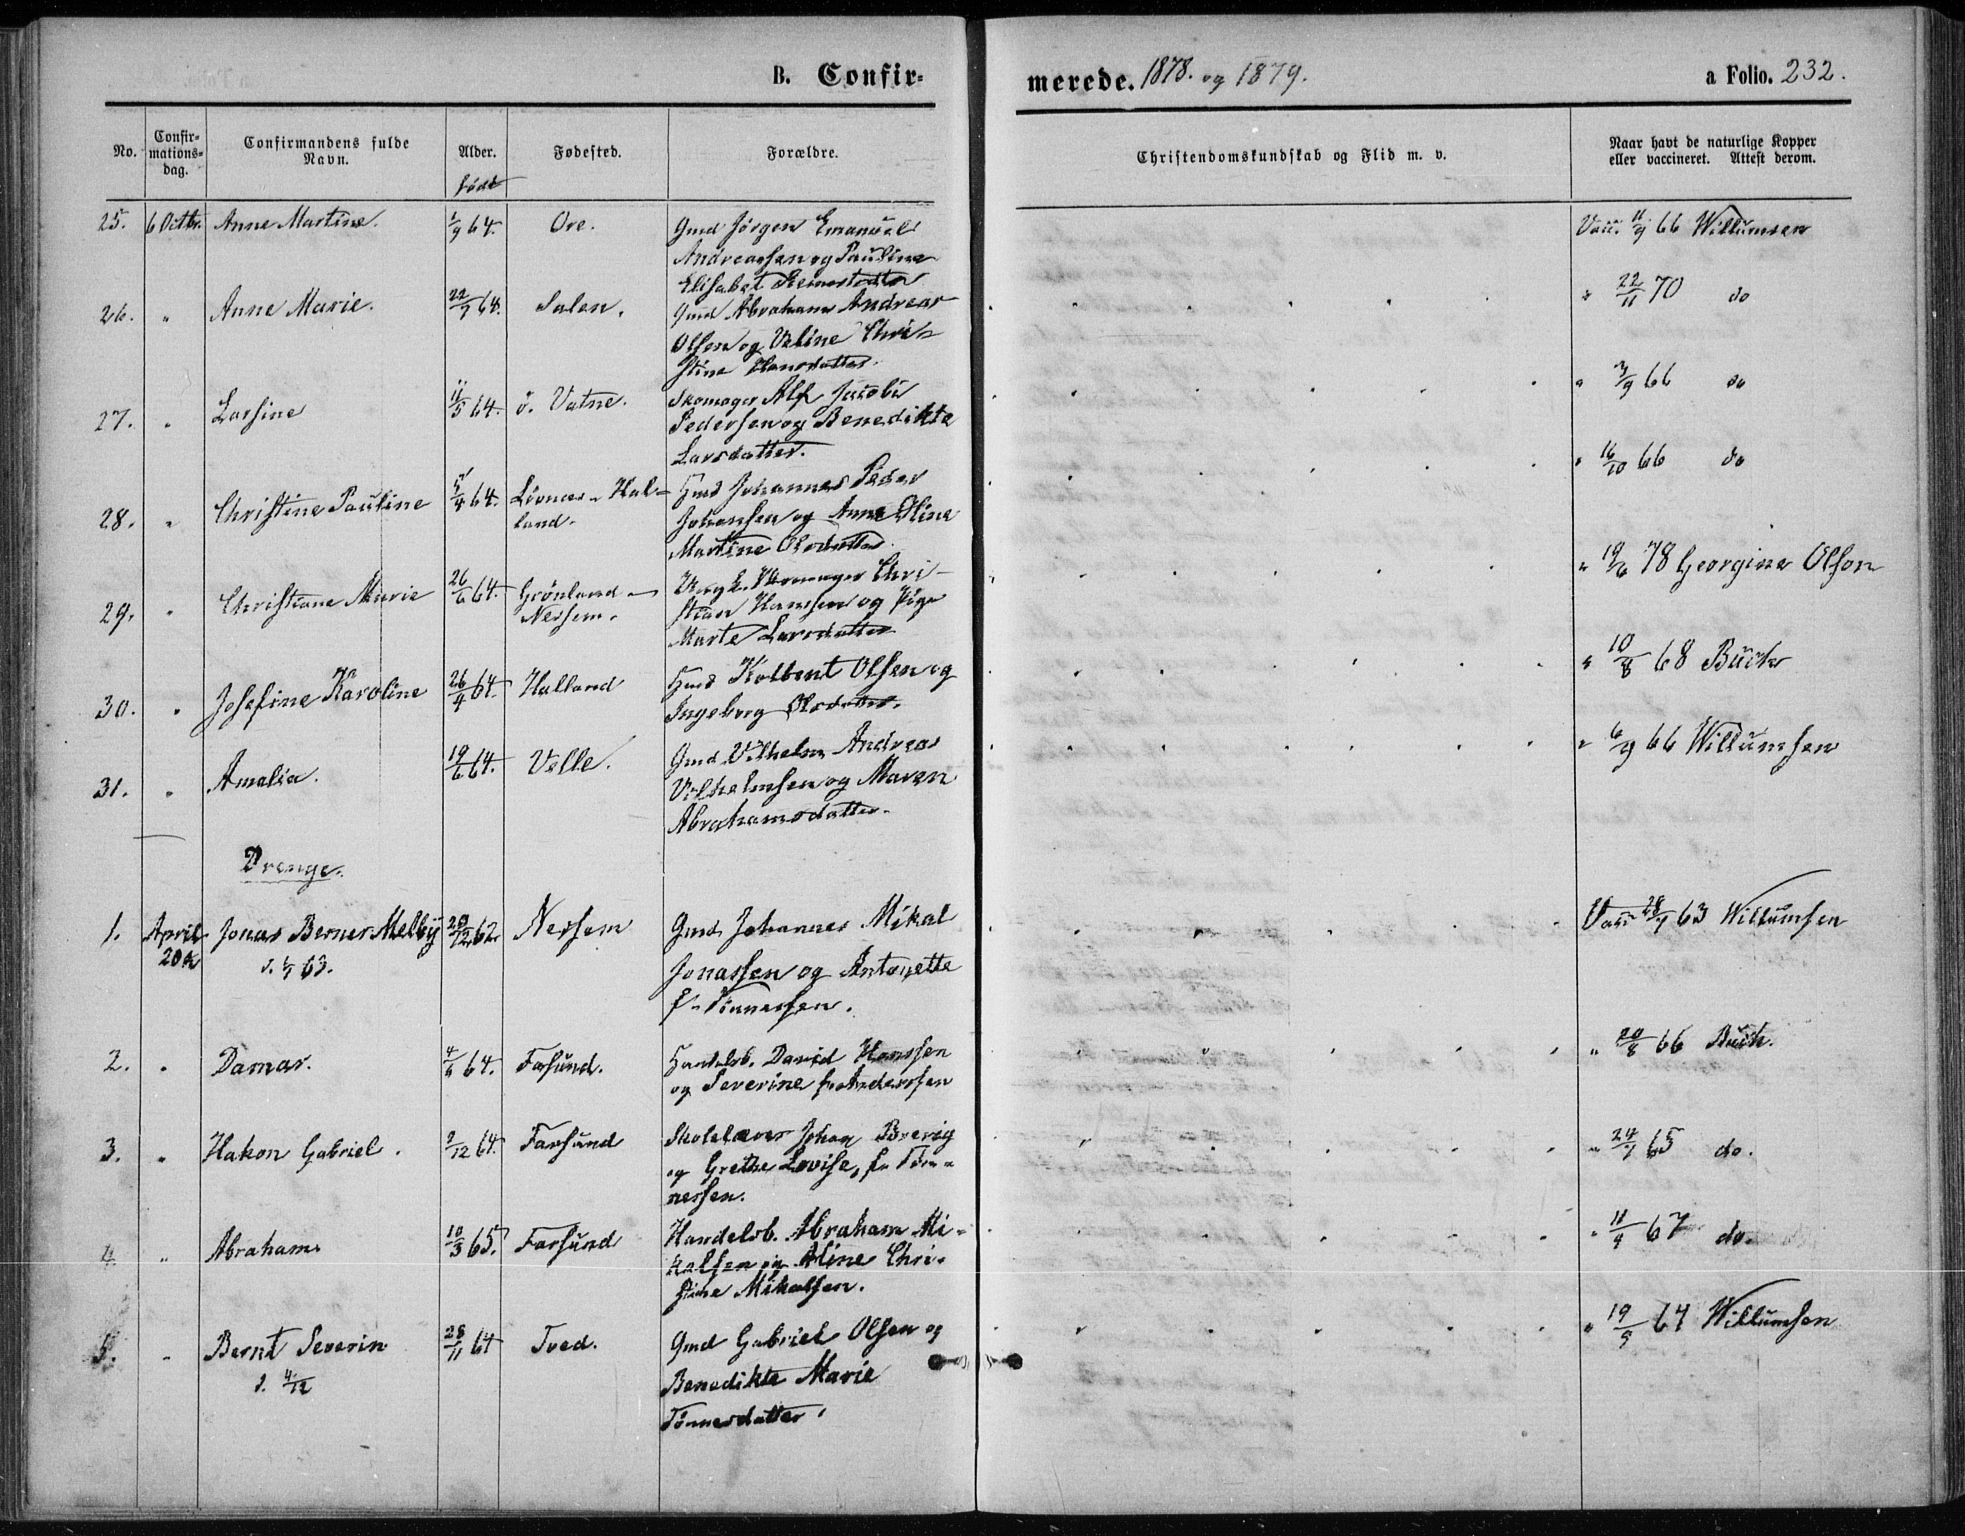 B. Confir=
merede. 1878. og 1879.
a Folio. 232.
No.
Confir=
mations=
dag.
Confirmandens fulde
Navn.
Alder.
født
Fødested.
Forældre.
Christendomskundskab og Flid m. v.
Naar havt de naturlige Kopper
eller vaccineret. Attest derom.
25. 6 Octbr. Anne Martine. 1/9 64. Ore. Gmd Jørgen Emanuel
Andreassen og Pauline
Elisabet
Vacc. 11/9 66 Willumsen
26. " Anne Marie. 22/7 64. Salen. Gmd Abraham Andreas
Olsen og Valine Chri-
stine Hansdatter.
" 22/11 70 do
27. " Larsine 11/5 64. ö. Vatne. Skomager Alf Jacobi
Pedersen og Benedikte
Larsdatter.
" 3/9 66 do
28. " Christine Pauline 64. Hal-
land. Hmd Johannes Peder
Johansen og Anne Oline
Martine Olsdatter
" 16/10 66 do
29. " Christiane Marie 26/6 64. Grönland -
Nersem. Chri-
stian Hansen og Pige
Marte Larsdatter
" 19/6 78 Georgine Olson
30. " Josefine Karoline 26/4 64. Halland Hmd Kolbent Olsen og
Ingeborg Olsdatter.
" 10/8 68 Buch
31. " Amalia. 19/6 64. Velle. Gmd Vilhelm Andreas
Vilhelmsen og Maren
Abrahamsdatter.
" 6/9 66 Willumsen
Drenge.
1. April
20de Jonas Berner Melby 62. Nersem Gmd Johannes Mikal
63.
Jonassen og Antonette
f.
Vacc 63 Willumsen
2. " Damar. 64. Farsund. Handelsb. David Hanssen
og Severine f. Anderssen
" 20/8 66 Buch.
3. " Hakon Gabriel. 2/12 64. Farsund Skolelærer Johan Brevig
og Grethe Lovise, f. Tön-
nessen.
" 24/7 65 do.
4. " Abraham 10/3 65. Farsund Handelsb. Abraham Mi-
kalsen og Aline Chri-
stine Mikalsen.
" 67 do.
5. " Bernt Severin 28/11 64 Tved. Gmd Gabriel Olsen og
d. 4/12
Benedikte Marie
Tönnesdatter.
" 19/9 64 Willumsen